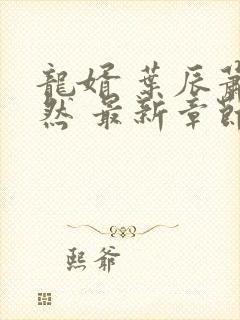 龍婿 葉辰蕭
然 最新章節
熙爺